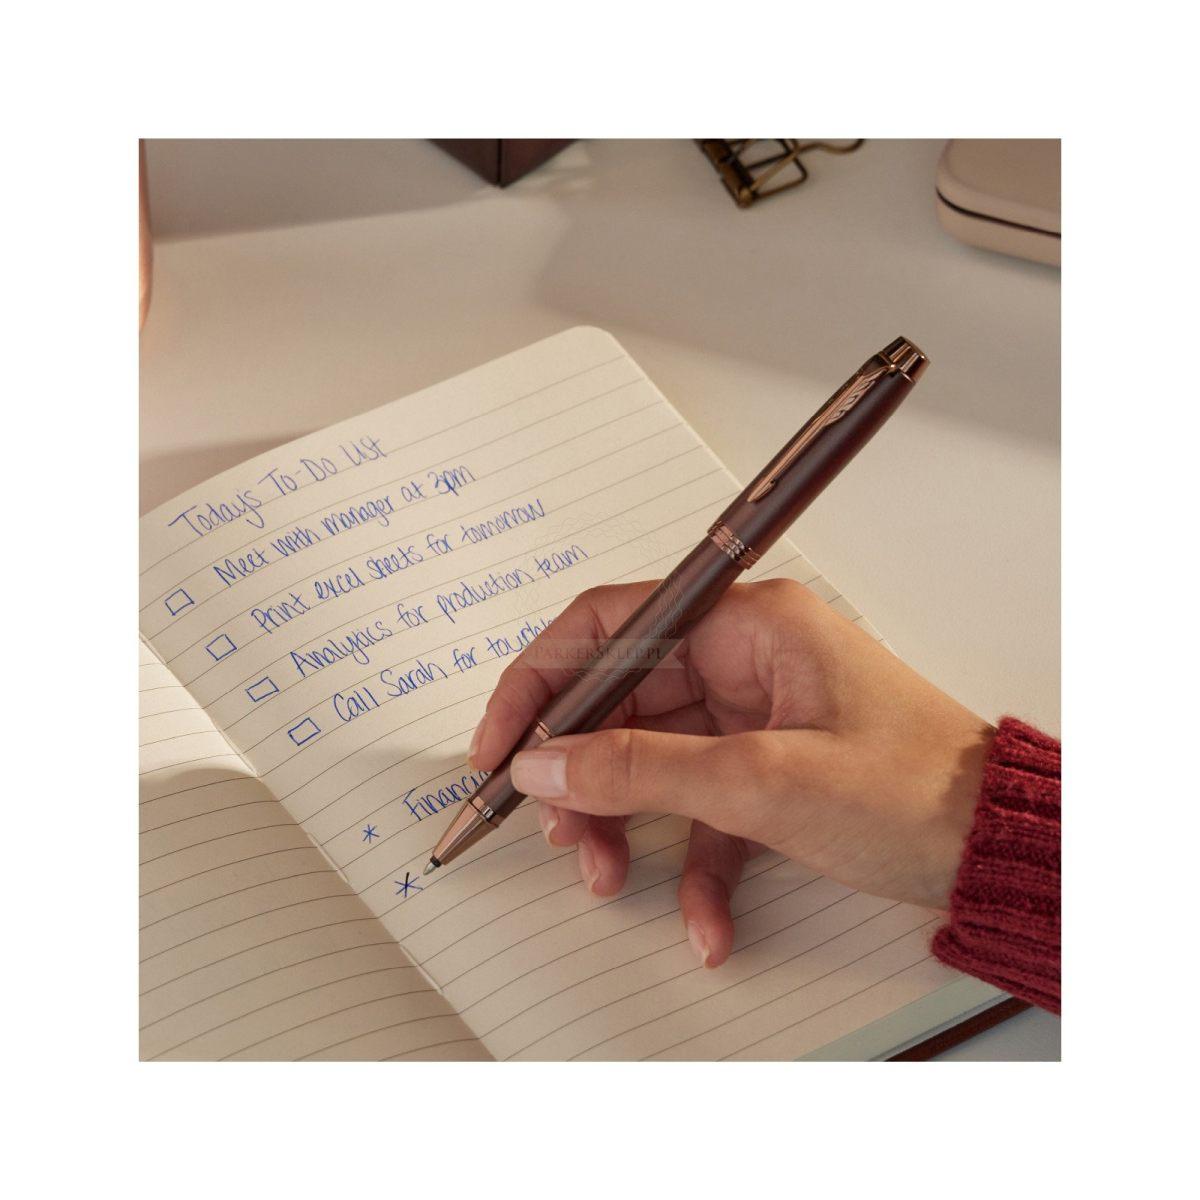 Today's To-Do List
Meet with manager at 3pm
Print excel sheets for tomorrow
Analytics for production team
Call Sarah for
PARKERSKLEP.PL
* Financi
*